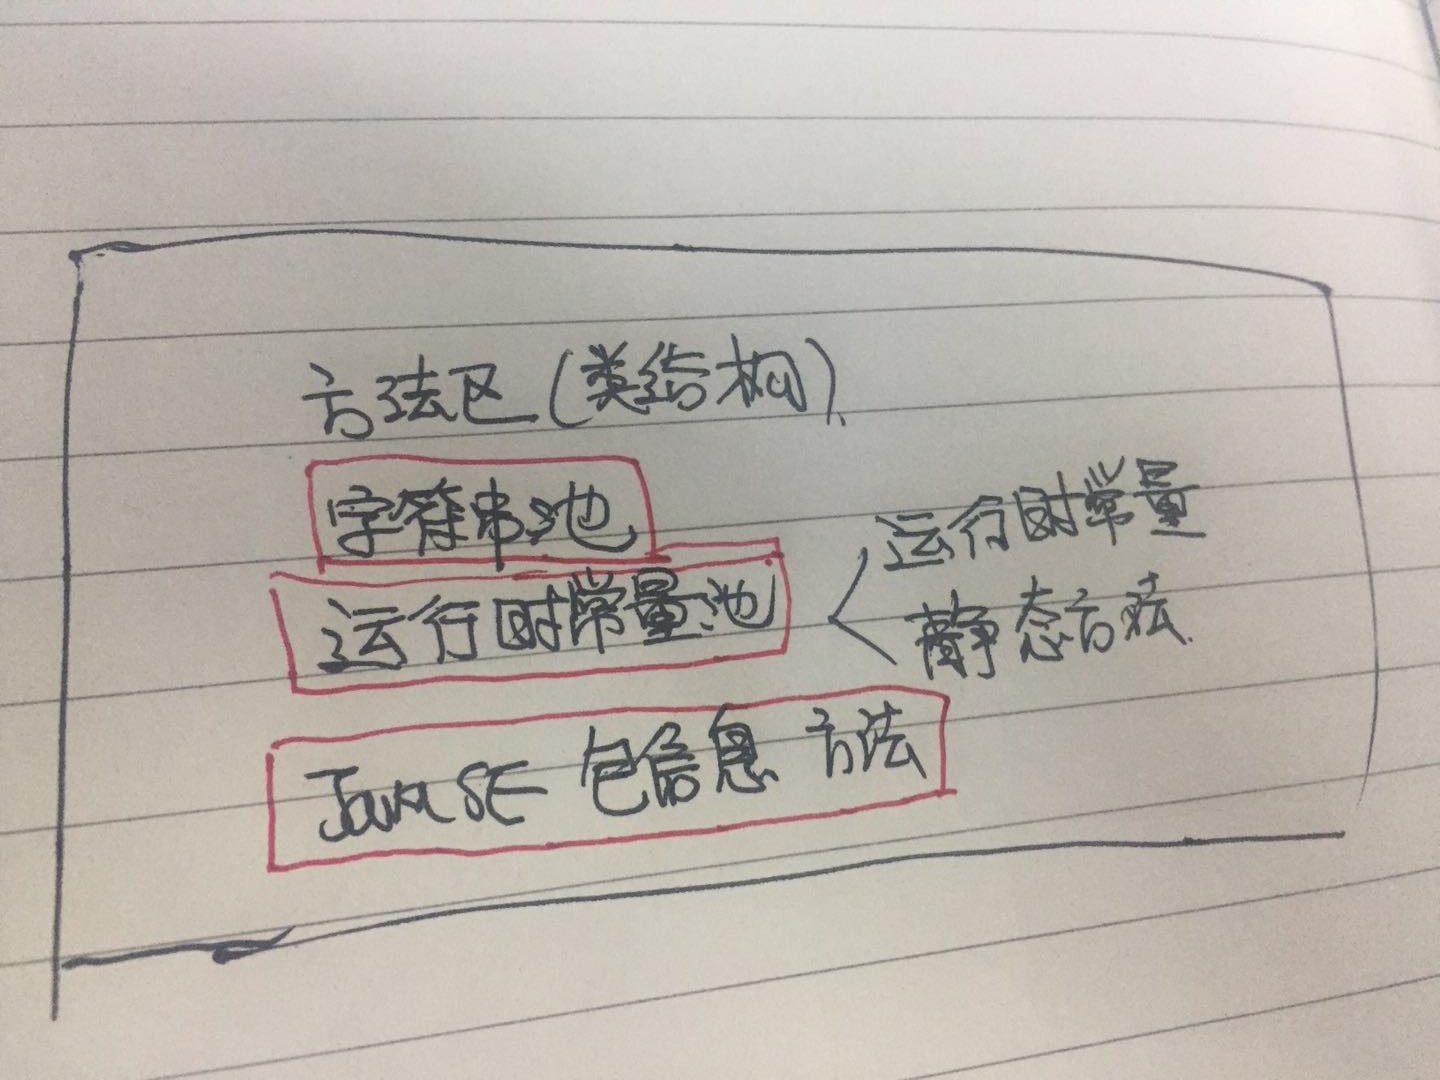 方法区(类结构)
字符串池
运行时常量池
运行时常量
静态方法
JavaSE 包信息 方法